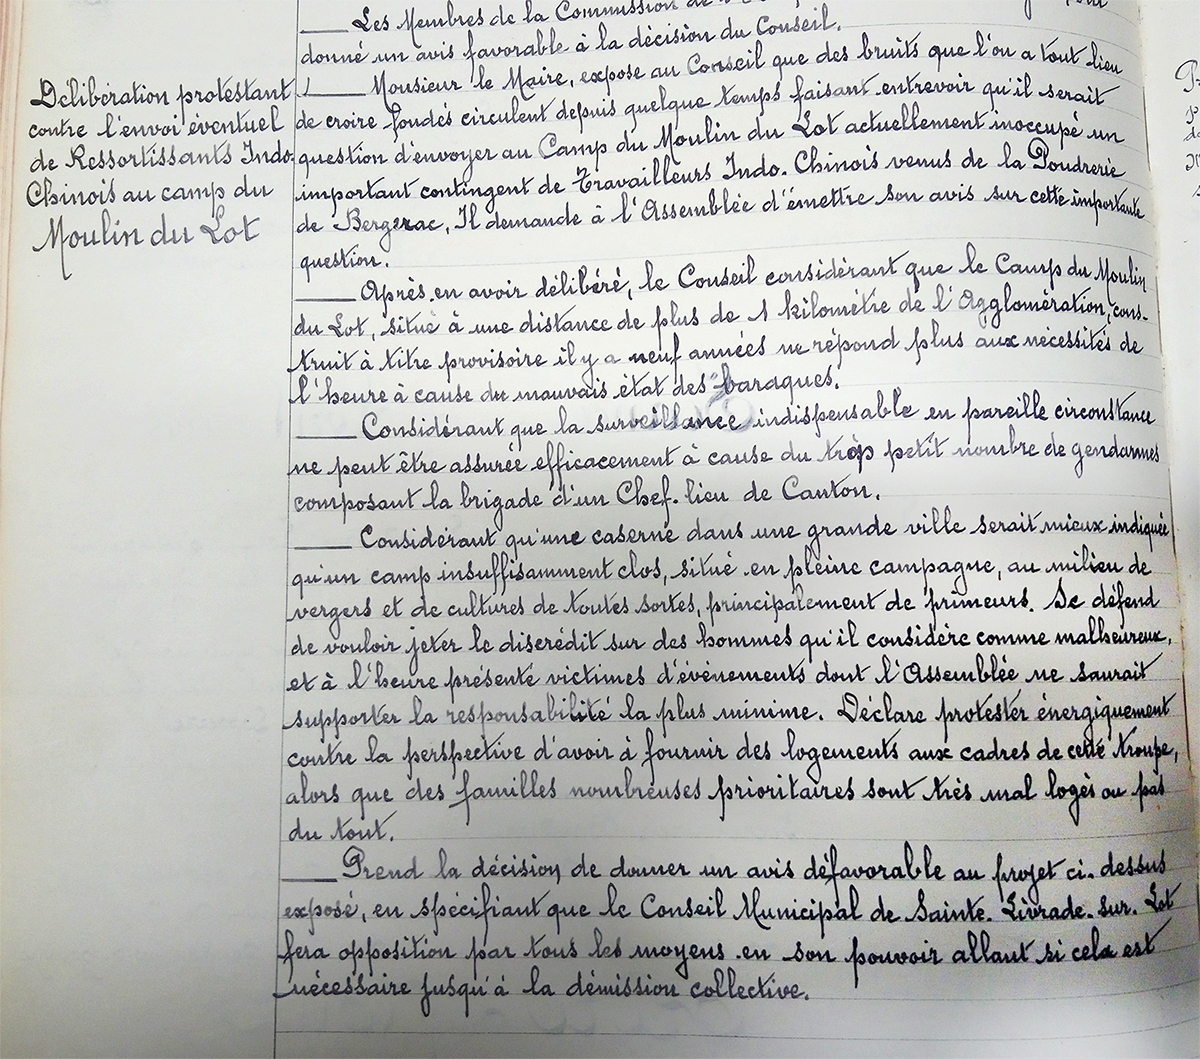 Les Membres de la Commission de
donné un avis favorable à la décision du Conseil.
Délibération protestant
contre l'envoi éventuel
de Ressortissants Indo-
Chinois au camp du
Moulin du Lot
Monsieur le Maire, expose au Conseil que des bruits que l'on a tout lieu
de croire fondés circulent depuis quelque temps faisant entrevoir qu'il serait
question d'envoyer au Camp du Moulin du Lot actuellement inoccupé un
important contingent de Travailleurs Indo-Chinois venus de la Poudrerie
de Bergerac. Il demande à l'Assemblée d'émettre son avis sur cette importante
question.
Après en avoir délibéré, le Conseil considérant que le Camp du Moulin
du Lot, situé à une distance de plus de 1 kilomètre de l'Agglomération, cons-
truit à titre provisoire il y a neuf années ne répond plus aux nécessités de
l'heure à cause du mauvais état des baraques.
Considérant que la surveillance indispensable en pareille circonstance
ne peut être assurée efficacement à cause du trop petit nombre de gendarmes
composant la brigade d'un Chef-lieu de Canton.
Considérant qu'une caserne dans une grande ville serait mieux indiquée
qu'un camp insuffisamment clos, situé en pleine campagne, au milieu de
vergers et de cultures de toutes sortes, principalement de primeurs. Se défend
de vouloir jeter le discrédit sur des hommes qu'il considère comme malheureux,
et à l'heure présente victimes d'événements dont l'Assemblée ne saurait
supporter la responsabilité la plus minime. Déclare protester énergiquement
contre la perspective d'avoir à fournir des logements aux cadres de cette troupe,
alors que des familles nombreuses prioritaires sont très mal logés ou pas
du tout.
Prend la décision de donner un avis défavorable au projet ci-dessus
exposé, en spécifiant que le Conseil Municipal de Sainte-Livrade-sur-Lot
fera opposition par tous les moyens en son pouvoir allant si cela est
nécessaire jusqu'à la démission collective.